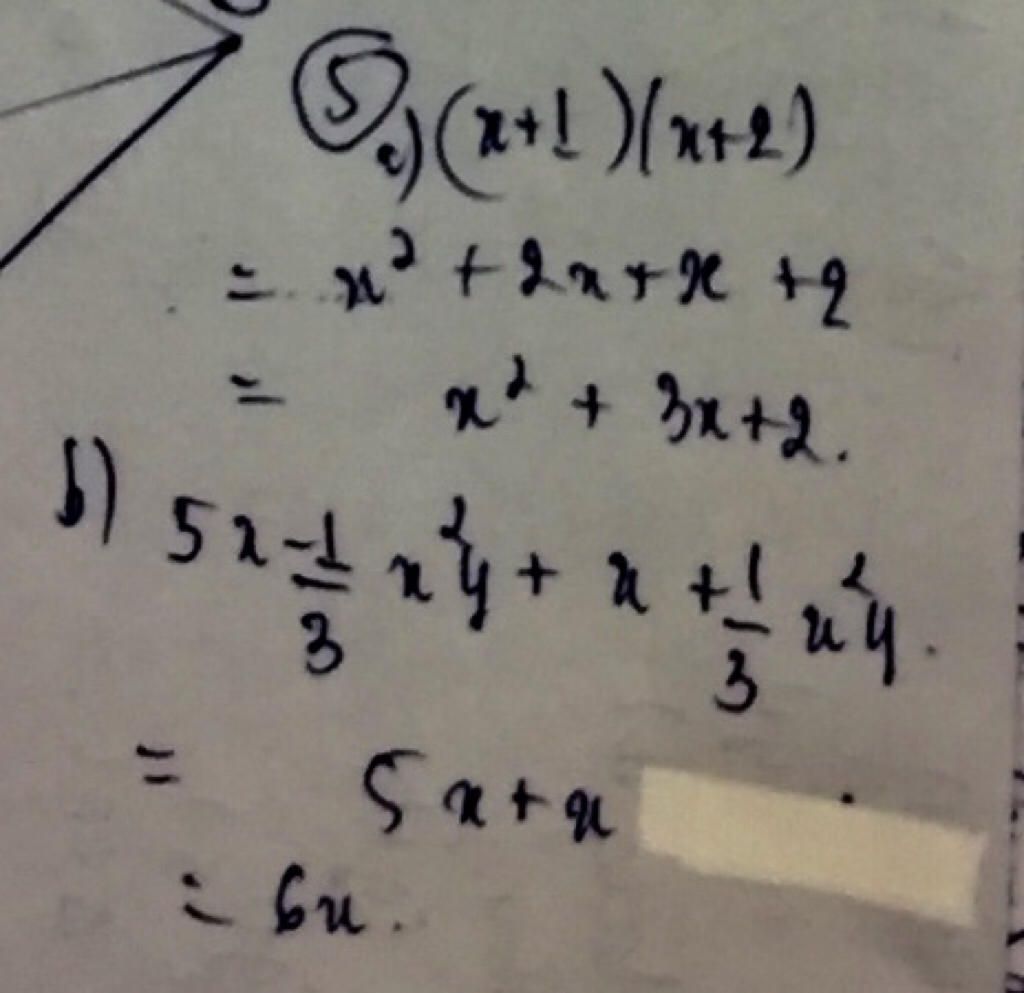 ⑤ a) (x+1)(x+2)
= x² + 2x + x + 2
= x² + 3x + 2.
b) 5x - 1/3 x²y + x + 1/3 x²y.
= 5x + x
= 6x.